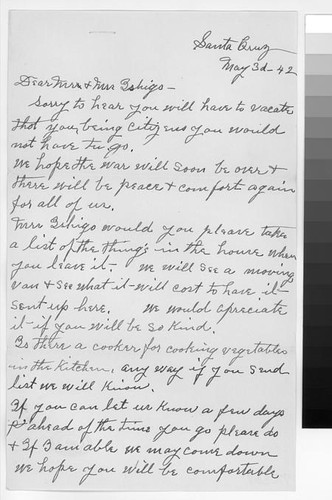 Santa Cruz
May 3d-42
Dear Mrs & Mr Ishigo-
Sorry to hear you will have to vacate
that you, being citizens you would
not have to go.
We hope the war will soon be over &
there will be peace & comfort again
for all of us.
Mrs Ishigo would you please take
a list of the things in the house when
you leave it- we will see a moving
van & see what it will cost to have it-
sent up here. We would apreciate
it-if you will be so kind.
Is there a cooker for cooking vegetables
in the kitchen, any way if you send
list we will know.
If you can let us know a few days
ahead of the time you go please do
& If I am able we may come down
we hope you will be comfortable